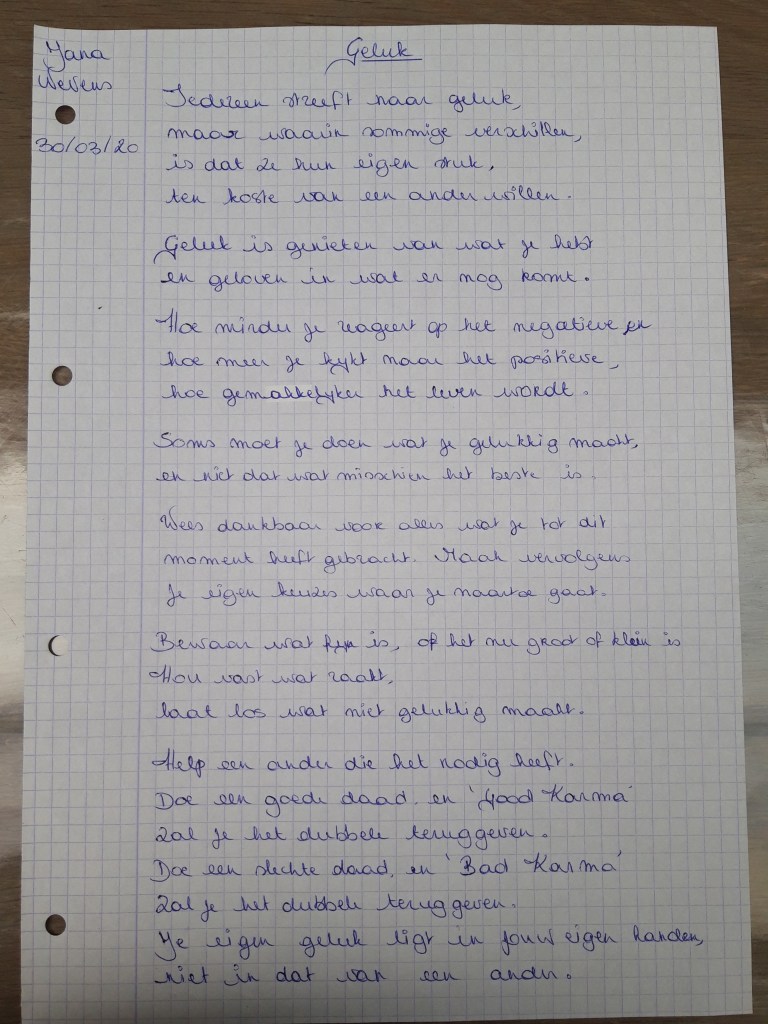 Yana
Wevens
30/03/20
Geluk
Iedereen streeft naar geluk,
maar waarin sommige verschillen,
is dat ze hun eigen stuk,
ten koste van een ander willen.
Geluk is genieten van wat je hebt
en geloven in wat er nog komt.
Hoe minder je reageert op het negatieve en
hoe meer je kijkt naar het positieve,
hoe gemakkelijker het leven wordt.
Soms moet je doen wat je gelukkig maakt,
en niet dat wat misschien het beste is.
Wees dankbaar voor alles wat je tot dit
moment heeft gebracht. Maak vervolgens
je eigen keuzes waar je naartoe gaat.
Bewaar wat fijn is, of het nu groot of klein is
Hou vast wat raakt,
laat los wat niet gelukkig maakt.
Help een ander die het nodig heeft.
Doe een goede daad, en 'Good Karma'
zal je het dubbele teruggeven.
Doe een slechte daad, en 'Bad Karma'
zal je het dubbele teruggeven.
Je eigen geluk ligt in jouw eigen handen,
niet in dat van een ander.